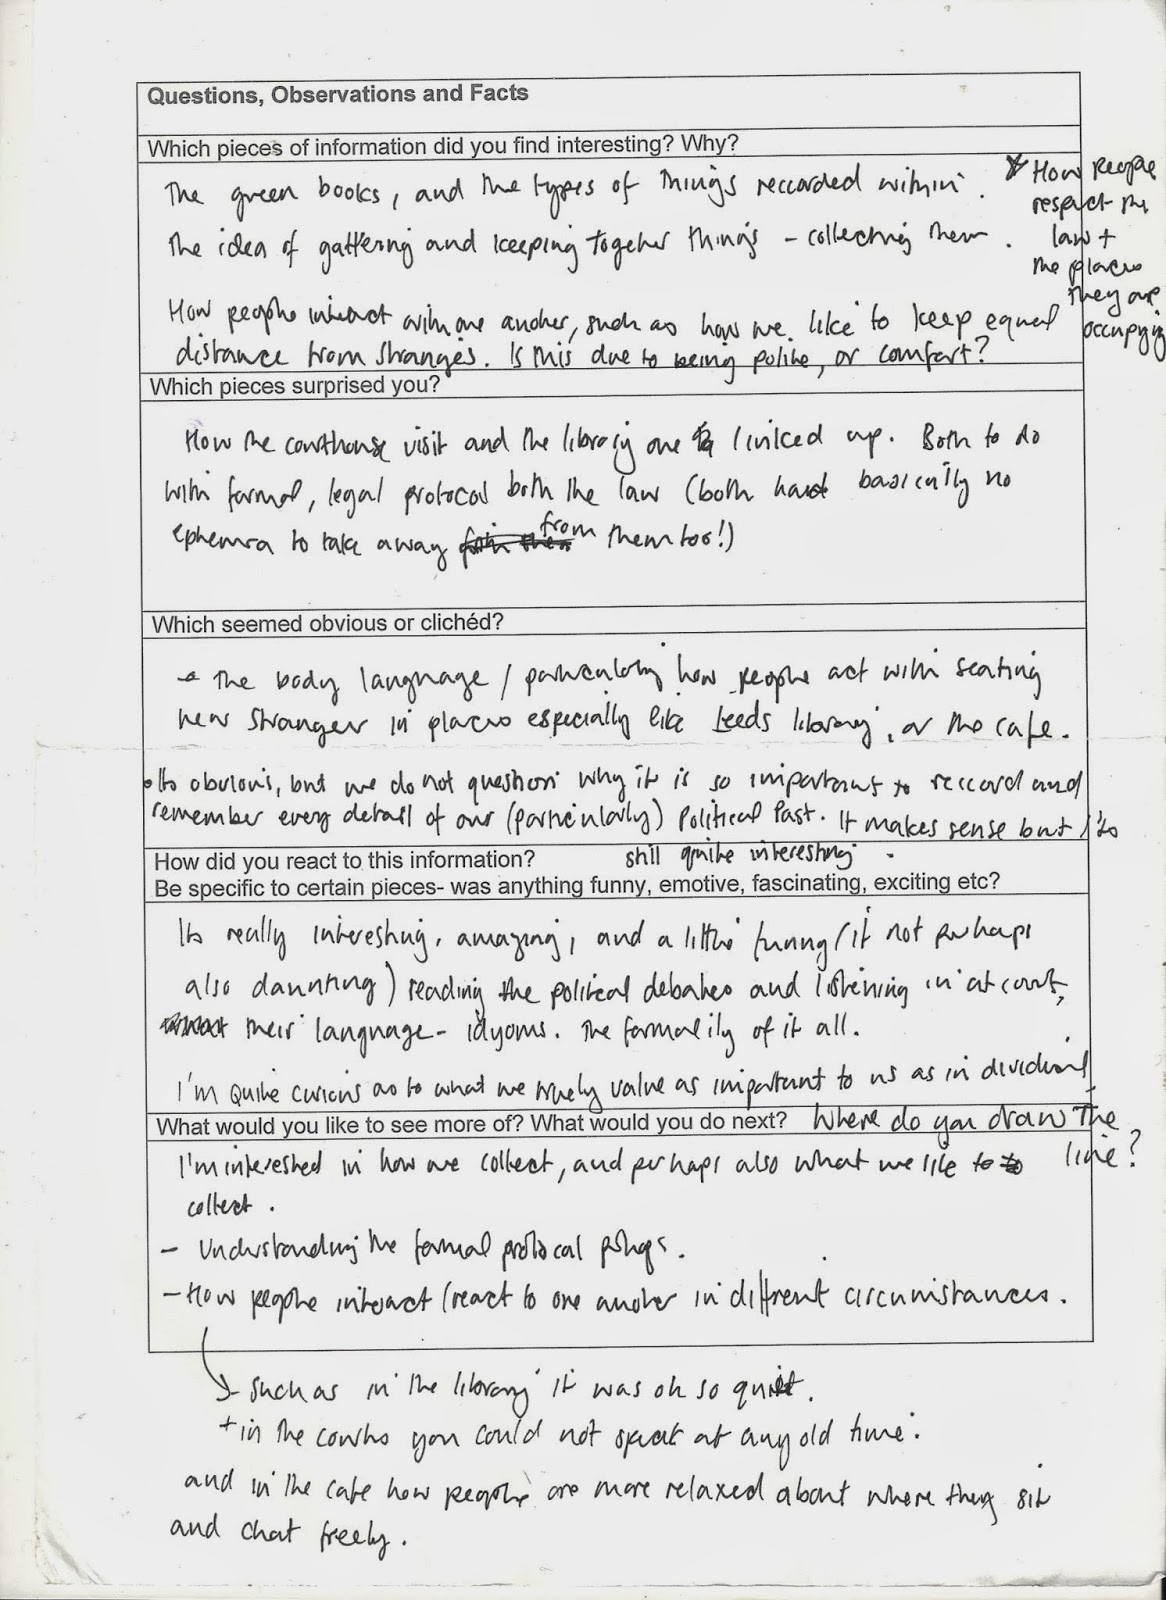 Questions, Observations and Facts
Which pieces of information did you find interesting? Why?
The green books, and the types of things reccorded within.
The idea of gathering and keeping together things - collecting them.
How people interact with one another, such as how we like to keep equal
distance from strangers. Is this due to being polite, or comfort?
* How people
respect the
law +
the places
they are
occupying
Which pieces surprised you?
How the courthouse visit and the library one linked up. Both to do
with formal, legal protocol both the law (both had basically no
ephemra to take away from them too!)
Which seemed obvious or clichéd?
The body language / particularly how people act with seating
near stranger in places especially like Leeds library, or the cafe.
• Its obvious, but we do not question why it is so important to reccord and
remember every detail of our (particularly) Political Past. It makes sense but its
still quite interesting.
How did you react to this information?
Be specific to certain pieces- was anything funny, emotive, fascinating, exciting etc?
Its really interesting, amazing, and a little funny (if not perhaps
also daunting) reading the political debates and listening in at court,
their language - idyoms. The formality of it all.
I'm quite curious as to what we truely value as important to us as individual
Where do you draw the
line?
What would you like to see more of? What would you do next?
I'm interested in how we collect, and perhaps also what we like to
collect.
- Understanding the formal protocal
- How people interact / react to one another in different circumstances.
such as in the library it was oh so quiet.
+ in the courts you could not speak at any old time.
and in the cafe how people are more relaxed about where they sit
and chat freely.